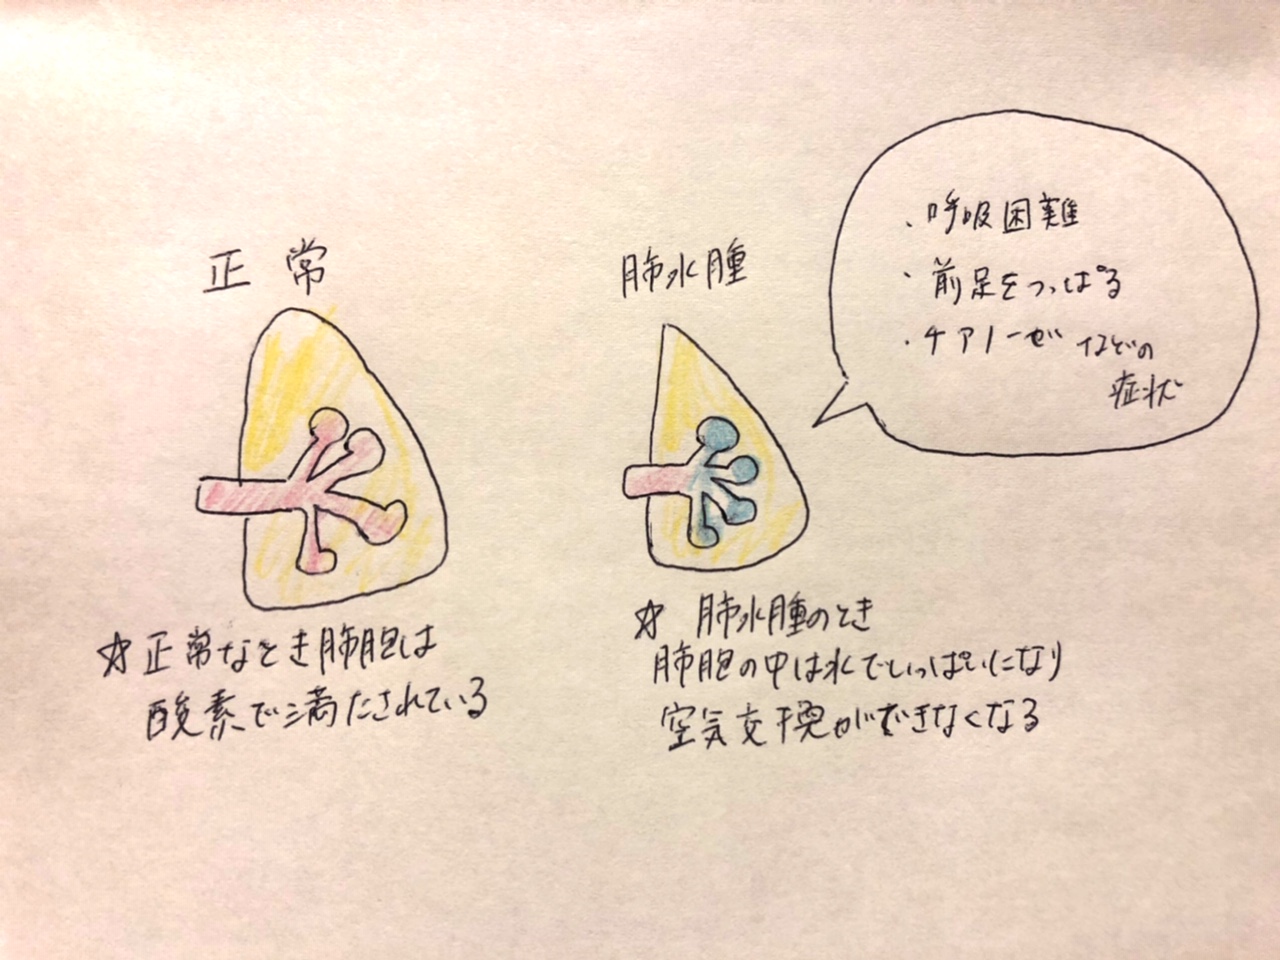 正常
☆正常なとき肺胞は
酸素で満たされている
肺水腫
☆ 肺水腫のとき
肺胞の中は水でいっぱいになり
空気交換ができなくなる
・呼吸困難
・前足をつっぱる
・チアノーゼ などの
症状